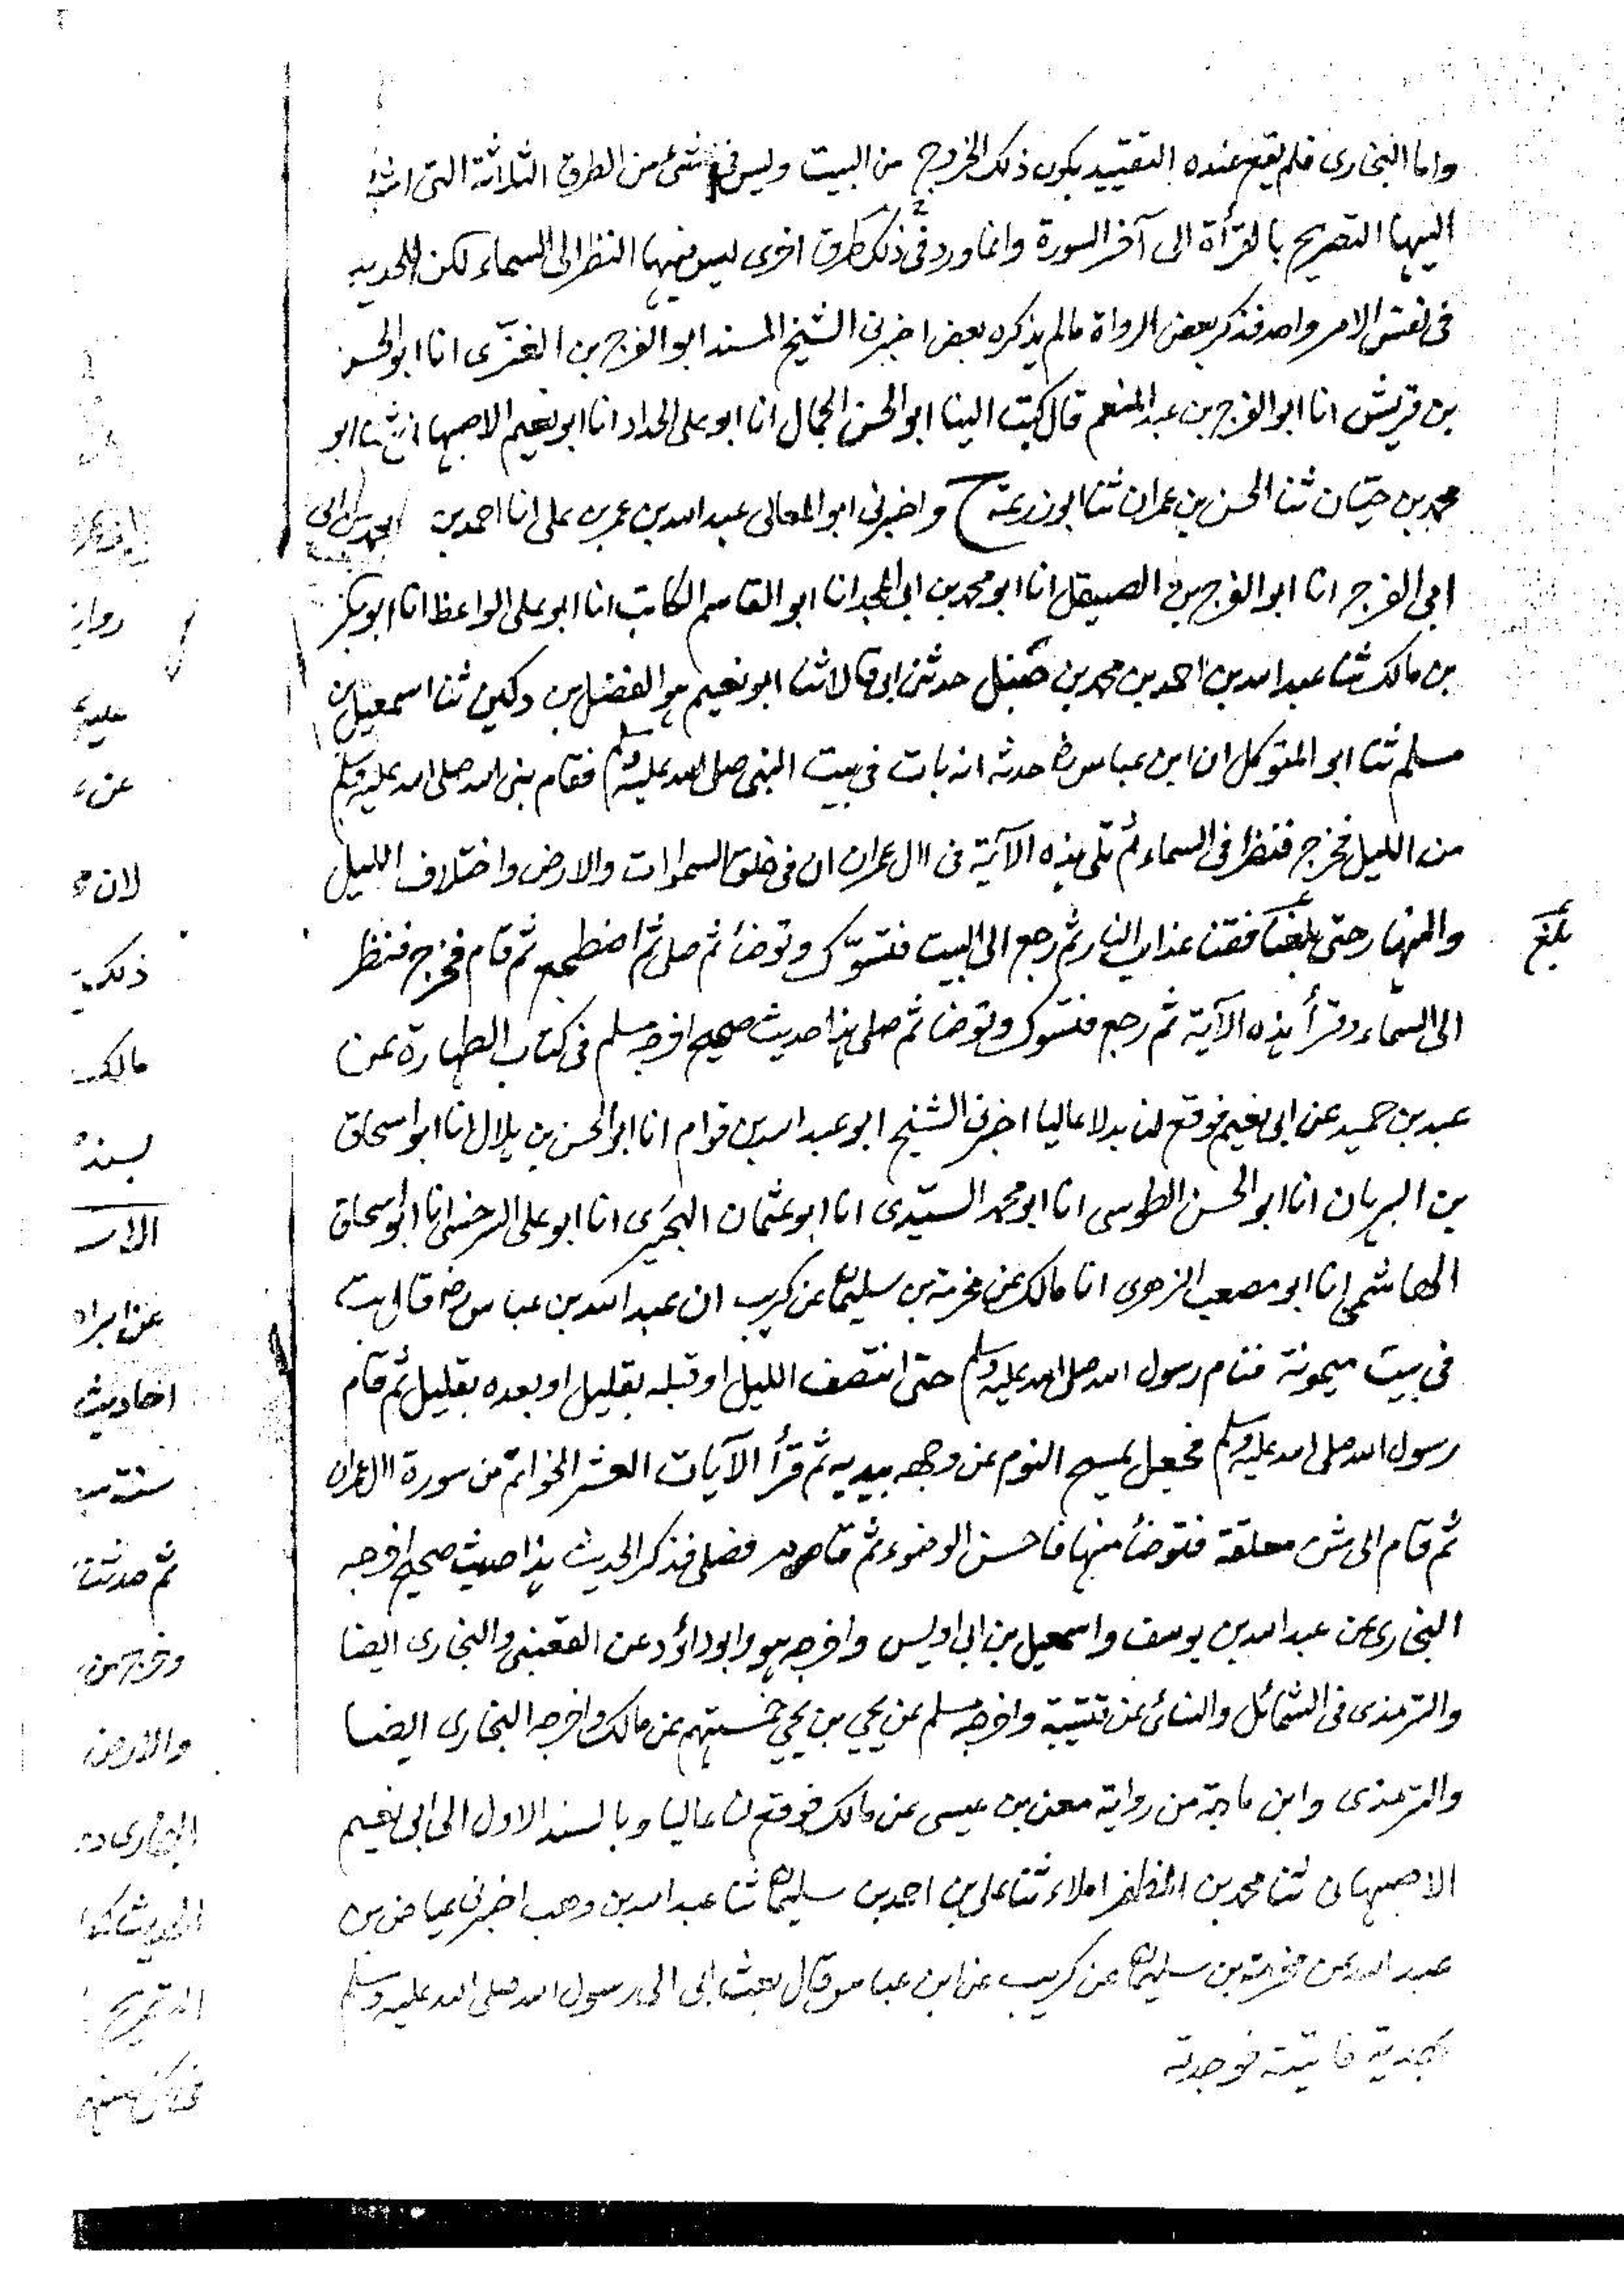 واما البخارى فلم يقع عنده التقييد بكون ذلك الخروج من البيت وليس فى شئ من الطرق الثلاثة التى اشر
اليها التصريح بالقرأة الى آخر السورة وانما ورد فى ذلك طرق اخرى ليس فيها النظر الى السماء لكن الحديث
فى نفس الامر واحد فذكر بعض الرواة مالم يذكره بعض اخبرنى الشيخ المسند ابو الفرج بن الغزّى انا ابو الحسن
بن قريش انا ابو الفرج بن عبد المنعم قال كتب الينا ابو الحسن الجمال انا ابو على الحداد انا ابو نعيم الاصبهانى ثنا ابو
محمد بن حيّان ثنا الحسن بن عمران ثنا ابو زرعة ح واخبرنى ابو المعالى عبد الله بن عمر بن على انا احمد بن محمد بن ابى
ابى الفرج انا ابو الفرج بن الصيقل انا ابو محمد بن ابى المجد انا ابو القاسم الكاتب انا ابو على الواعظ انا ابو بكر
بن مالك ثنا عبد الله بن احمد بن محمد بن حنبل حدثنى ابى قالا ثنا ابو نعيم هو الفضل بن دكين ثنا اسمعيل بن
مسلم ثنا ابو المتوكل ان ابن عباس رضـ حدثه انه بات فى بيت النبى صلى الله عليه وسلم فقام نبى الله صلى الله عليه وسلم
من الليل فخرج فنظر فى السماء ثم تلى هذه الآية فى ال عمران ان فى خلق السموات والارض واختلاف الليل
والنهار حتى بلغ فقنا عذاب النار ثم رجع الى البيت فتسوّك وتوضأ ثم صلى ثم اضطجع ثم قام فخرج فنظر
بلغ
الى السماء وقرأ هذه الآية ثم رجع فتسوك وتوضا ثم صلى هذا حديث صحيح اخرجه مسلم فى كتاب الطهارة عن
عبد بن حميد عن ابى نعيم فوقع لنا بدلا عاليا اخبرنى الشيخ ابو عبد الله بن قوام انا ابو الحسن بن هلال انا ابو اسحاق
بن البرهان انا ابو الحسن الطوسى انا ابو محمد السيّدى انا ابو عثمان البحيرى انا ابو على السرخسى انا ابو اسحاق
الهاشمى انا ابو مصعب الزهرى انا مالك عن مخرمة بن سليمان عن كريب ان عبد الله بن عباس رضـ قال بت
فى بيت ميمونة فنام رسول الله صلى الله عليه وسلم حتى انتصف الليل او قبله بقليل او بعده بقليل ثم قام
رسول الله صلى الله عليه وسلم فجعل يمسح النوم عن وجهه بيديه ثم قرأ الآيات العشر الخواتم من سورة ال عمران
ثم قام الى شن معلقة فتوضأ منها فاحسن الوضوء ثم قام فصلى فذكر الحديث هذا حديث صحيح اخرجه
البخارى عن عبد الله بن يوسف واسمعيل بن ابى اويس واخرجه هو وابو داؤد عن القعنبى والبخارى ايضا
والترمذى فى الشمائل والنسائى عن قتيبة واخرجه مسلم عن يحيى بن يحيى خمستهم عن مالك واخرجه البخارى ايضا
والترمذى وابن ماجة من رواية معن بن عيسى عن مالك فوقع لنا عاليا وبالسند الاول الى ابى نعيم
الاصبهانى ثنا محمد بن المظفر املاء ثنا على بن احمد بن سليمان ثنا عبد الله بن وهب اخبرنى عياض بن
عبد الله عن مخرمة بن سليمان عن كريب عن ابن عباس قال بعثنى ابى الى رسول الله صلى الله عليه وسلم
بهدية فاتيته فوجدته
عن
لان
مالك
بسنده
احاديث
والارض